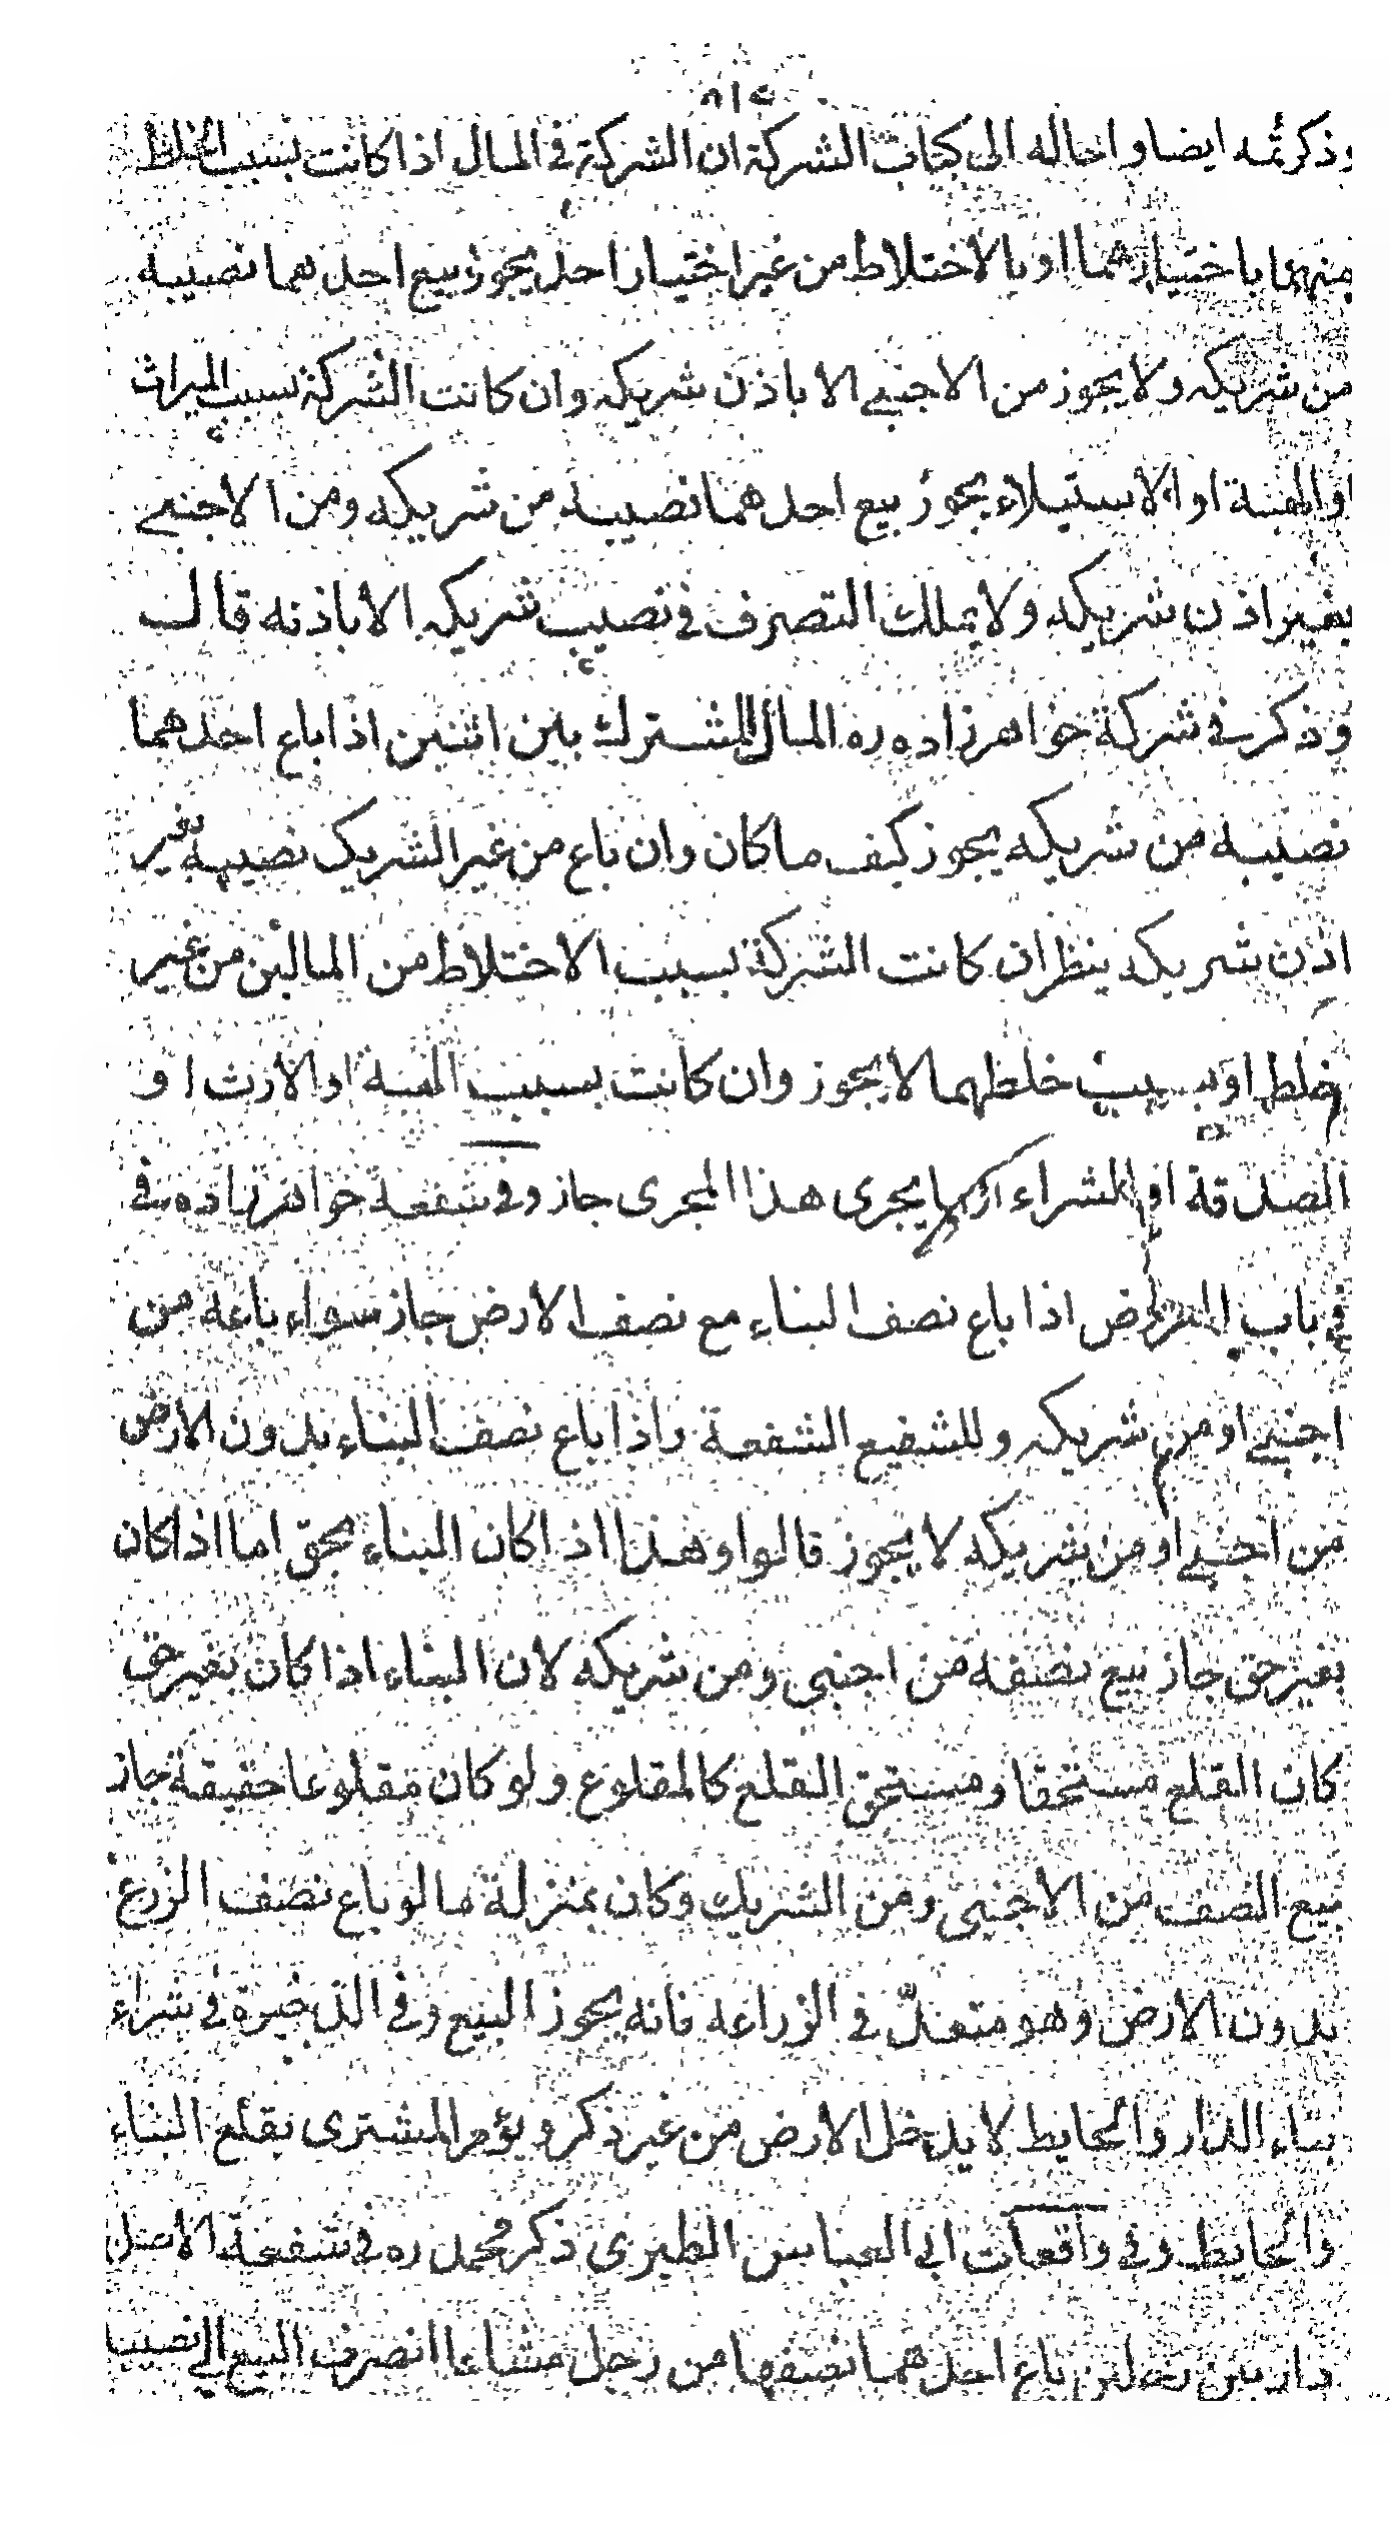 وذكر ثمه ايضا واحاله الى كتاب الشركة ان الشركة في المال اذا كانت بسبب الخلط
منهما باختيارهما او بالاختلاط من غير اختيار احد يجوز بيع احدهما نصيبه
من شريكه ولا يجوز من الاجنبي الا باذن شريكه وان كانت الشركة بسبب الميراث
او الهبة او الاستيلاء يجوز بيع احدهما نصيبه من شريكه ومن الاجنبي
بغير اذن شريكه ولا يملك التصرف في نصيب شريكه الا باذنه قال
وذكر في شركة خواهر زاده ره المال المشترك بين اثنين اذا باع احدهما
نصيبه من شريكه يجوز كيف ما كان وان باع من غير الشريك نصيبه بغير
اذن شريكه ينظر ان كانت الشركة بسبب الاختلاط من المالين من غير
خلط او بسبب خلطهما لا يجوز وان كانت بسبب الهبة او الارث او
الصدقة او الشراء يجرى هذا المجرى جاز وفي شفعة خواهر زاده في
في باب اذا باع نصف البناء مع نصف الارض جاز سواء باعه من
اجنبي او من شريكه وللشفيع الشفعة واذا باع نصف البناء بدون الارض
من اجنبي او من شريكه لا يجوز قالوا وهذا اذا كان البناء بحق اما اذا كان
بغير حق جاز بيع نصفه من اجنبي ومن شريكه لان البناء اذا كان بغير حق
كان القلع مستحقا ومستحق القلع كالمقلوع ولو كان مقلوعا حقيقة جاز
بيع النصف من الاجنبي ومن الشريك وكان بمنزلة ما لو باع نصف الزرع
بدون الارض وهو متعدّ في الزراعة فانه يجوز البيع وفي الذخيرة في شراء
بناء الدار والحايط لا يدخل الارض من غير ذكر ويؤمر المشترى بقلع البناء
والحايط وفي واقعات ابي العباس الطبرى ذكر محمد ره في شفعة الاصل
دار بين رجلين باع احدهما نصفها من رجل مشاعا انصرف البيع الى نصيب